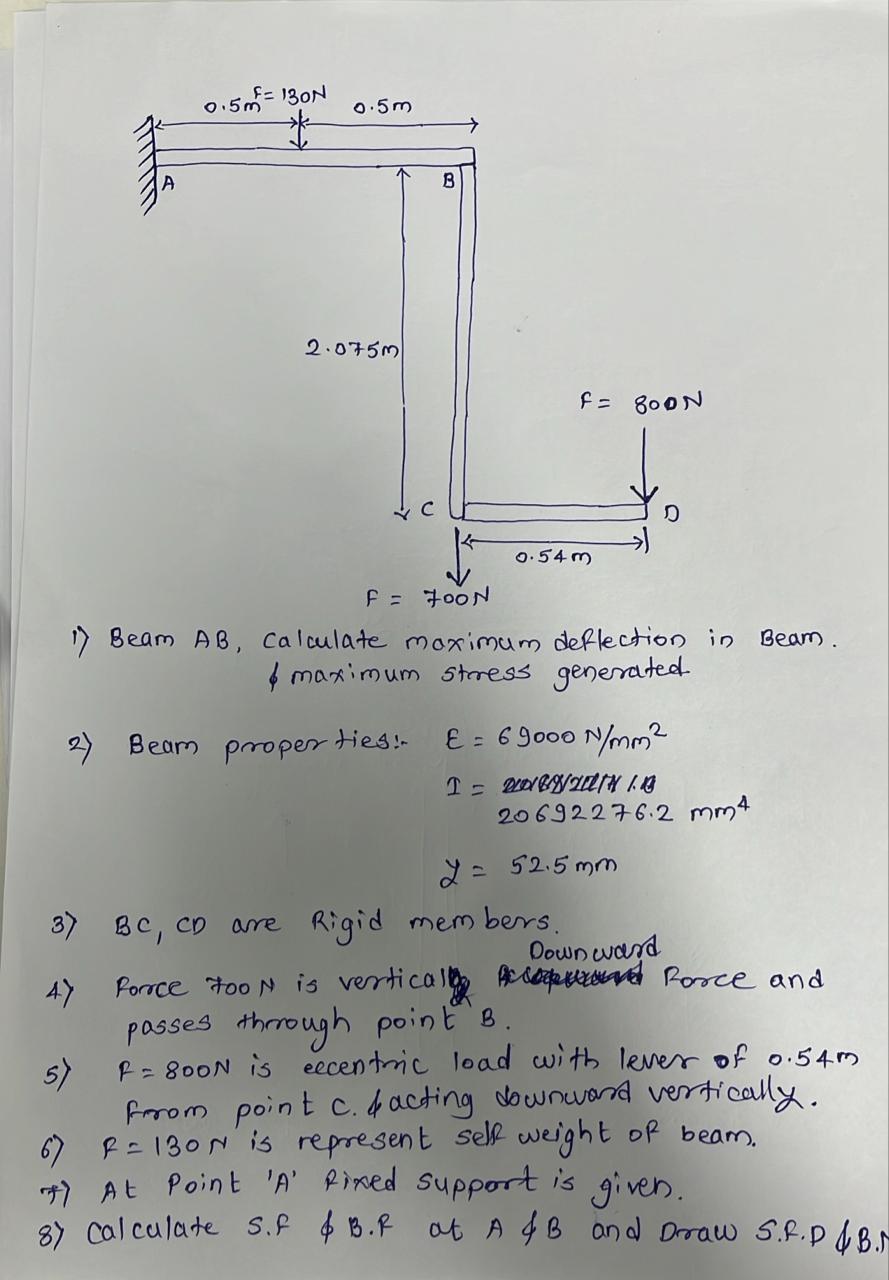 F= 130N
0.5m 0.5m
A B
2.075m
F= 800N
C D
0.54m
F = 700N
1) Beam AB, Calculate maximum deflection in Beam.
& maximum stress generated
2) Beam properties:- E = 69000 N/mm²
I =
20692276.2 mm⁴
y = 52.5mm
3) BC, CD are Rigid members.
Downward
4) Force 700N is vertical Force and
passes through point B.
5) F=800N is eccentric load with lever of 0.54m
from point C. & acting downward vertically.
6) F=130N is represent self weight of beam.
7) At Point 'A' fixed support is given.
8) Calculate S.F & B.F at A & B and Draw S.F.D & B.M